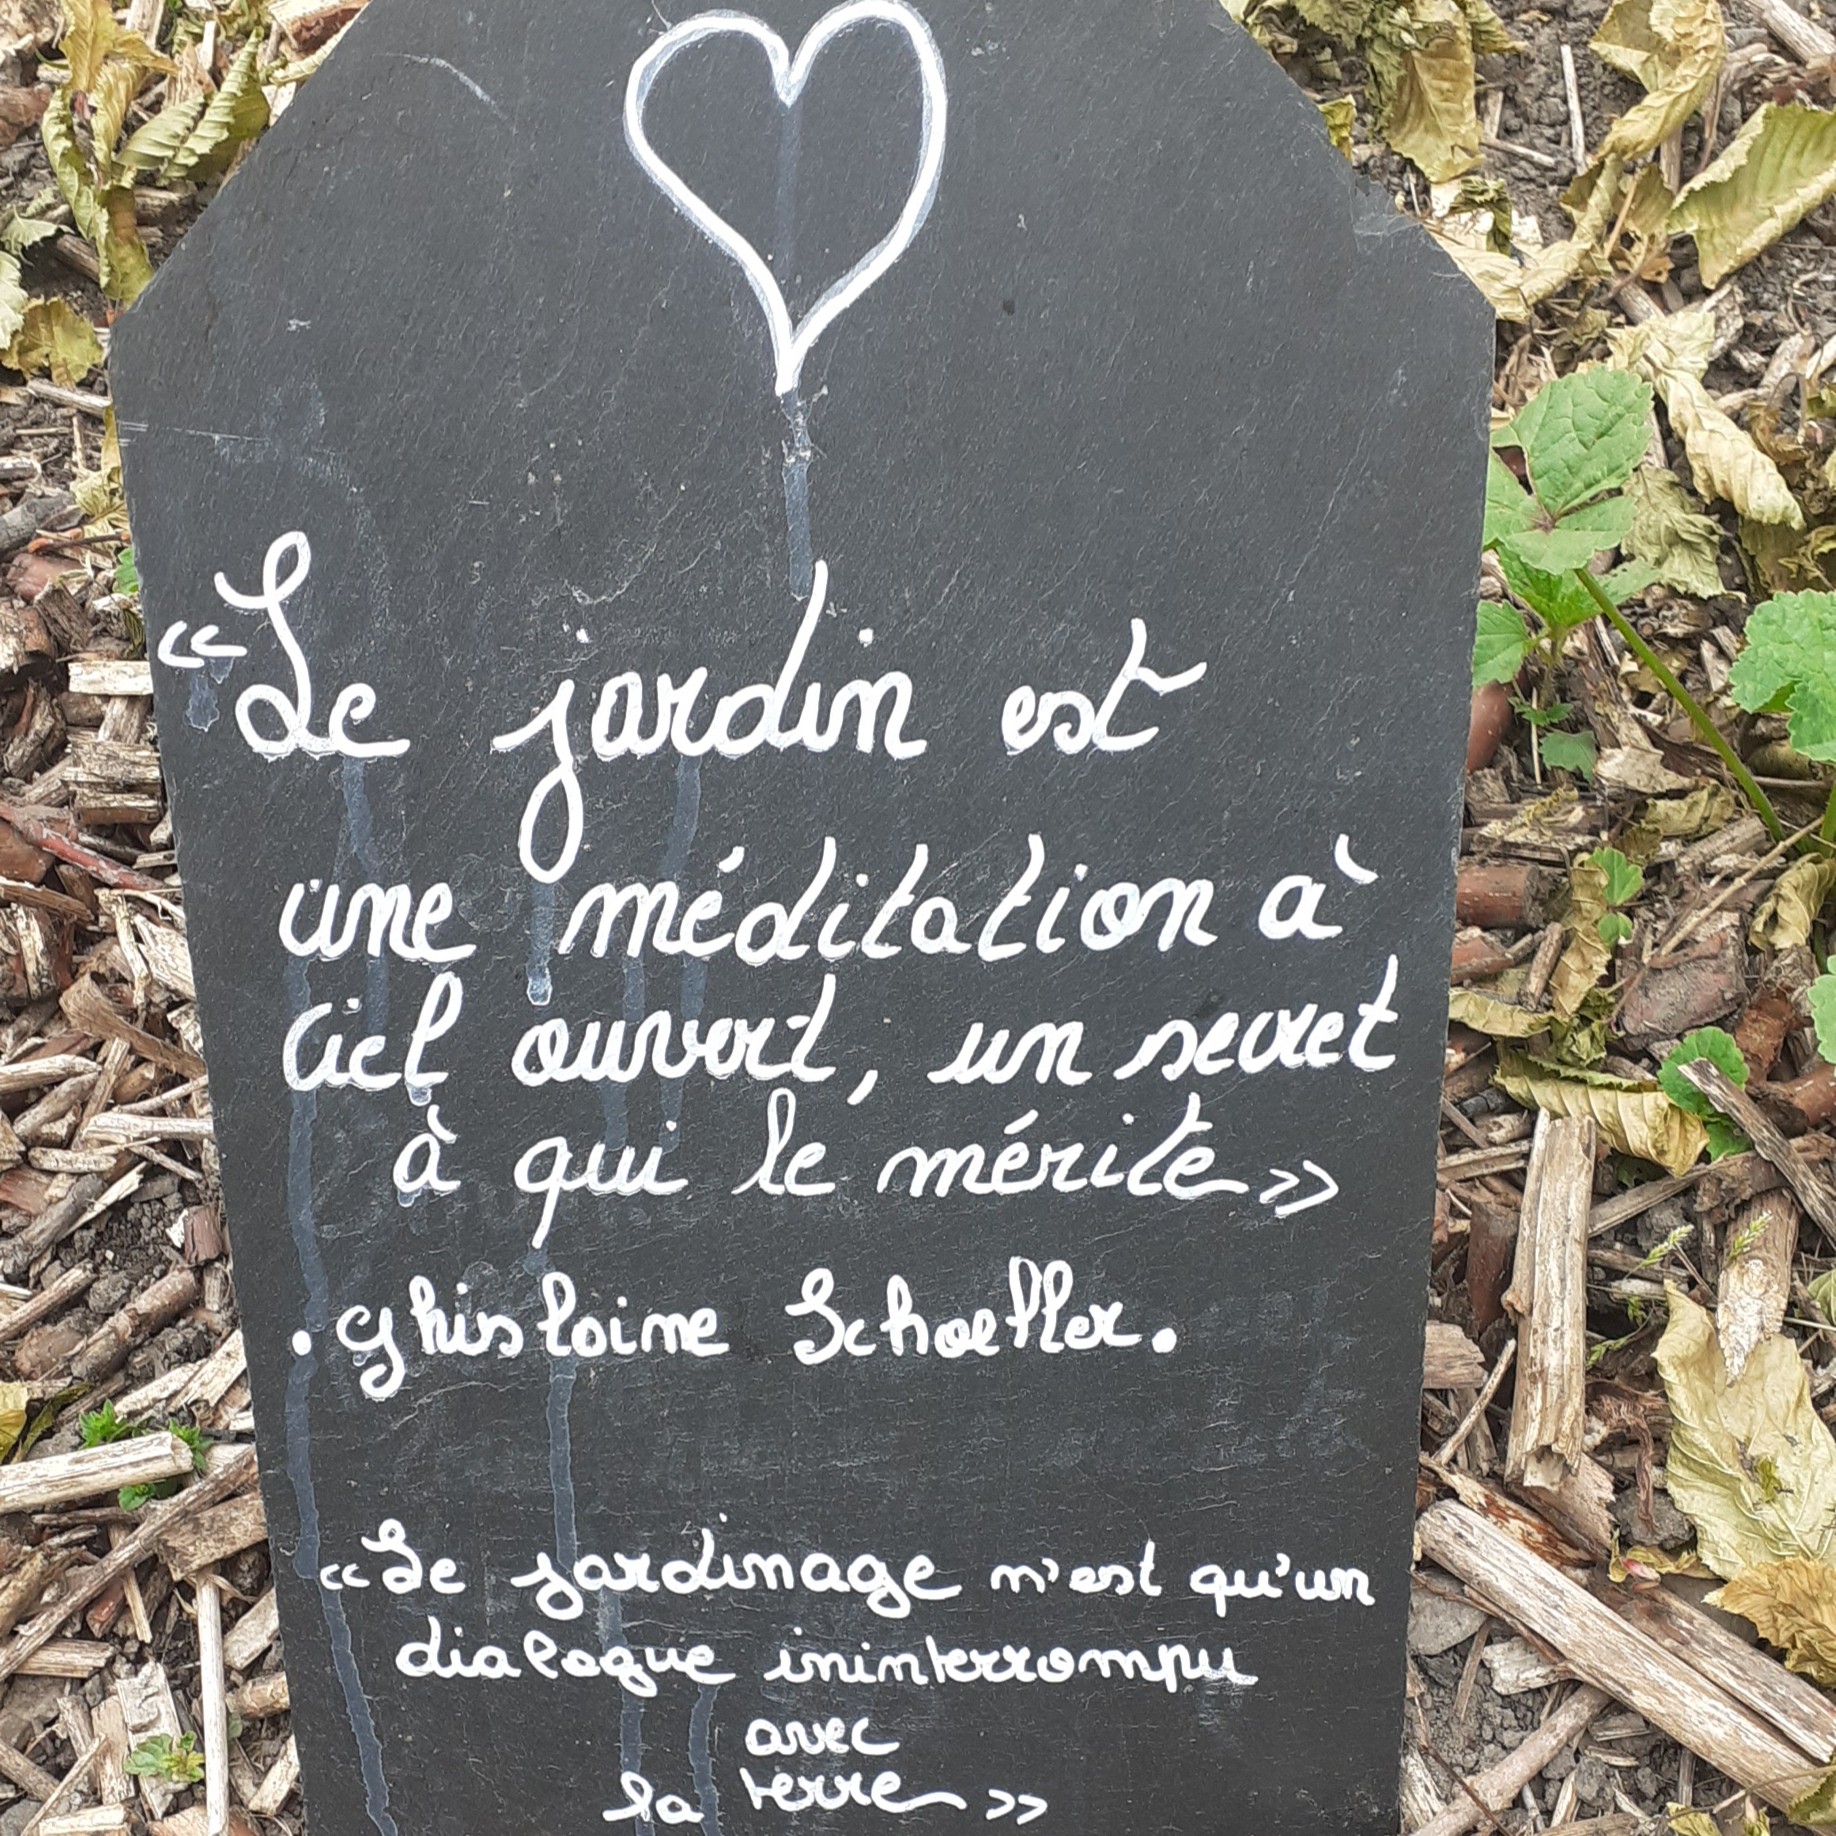 «Le jardin est
une méditation à
Ciel ouvert, un secret
à qui le mérite»
.Ghislaine Schoeller.
«Le jardinage n'est qu'un
dialogue ininterrompu
avec
la terre»